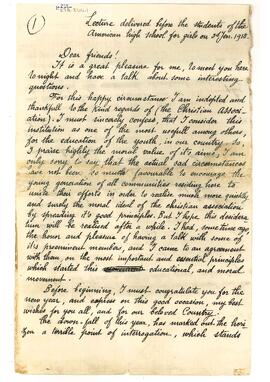 Lecture delivered before the students of the
American high school for girls on 3d Jan. 1918.
Dear friends!
It is a great pleasure for me, to meet you here
to night and have a talk about some interesting
questions.
For this happy circumstance I am indepted and
thankfull to the kind regards of the Christian Associ-
ation). I must sincerly confess, that I consider this
institution as one of the most usefull among others,
for the education of the youth, in our country. So,
I praise highly the moral value of its aims, I am
only sorry to say that the actual sad circumstances
are not been so much favourable to encourage the
young generation of all communities residing here to
unite their efforts in order to realise much more quickly
and surely the moral ideal of the christian association,
by spreading it's good principles. But I hope, this desidera-
tum will be realised after a while. I had, some time ago,
the honor and pleasure of having a talk with some of
its prominent membres, and I came to an agreement
with them, on the most important and essential principles
which started this educational, and moral
movement.
Before beginning, I must congratulate you for the
new year, and express on this good occasion, my best
wishes for you all, and for our beloved Country.
The down-fall of this year, has marked out the hori-
zon a terrible point of interrogation, which stands